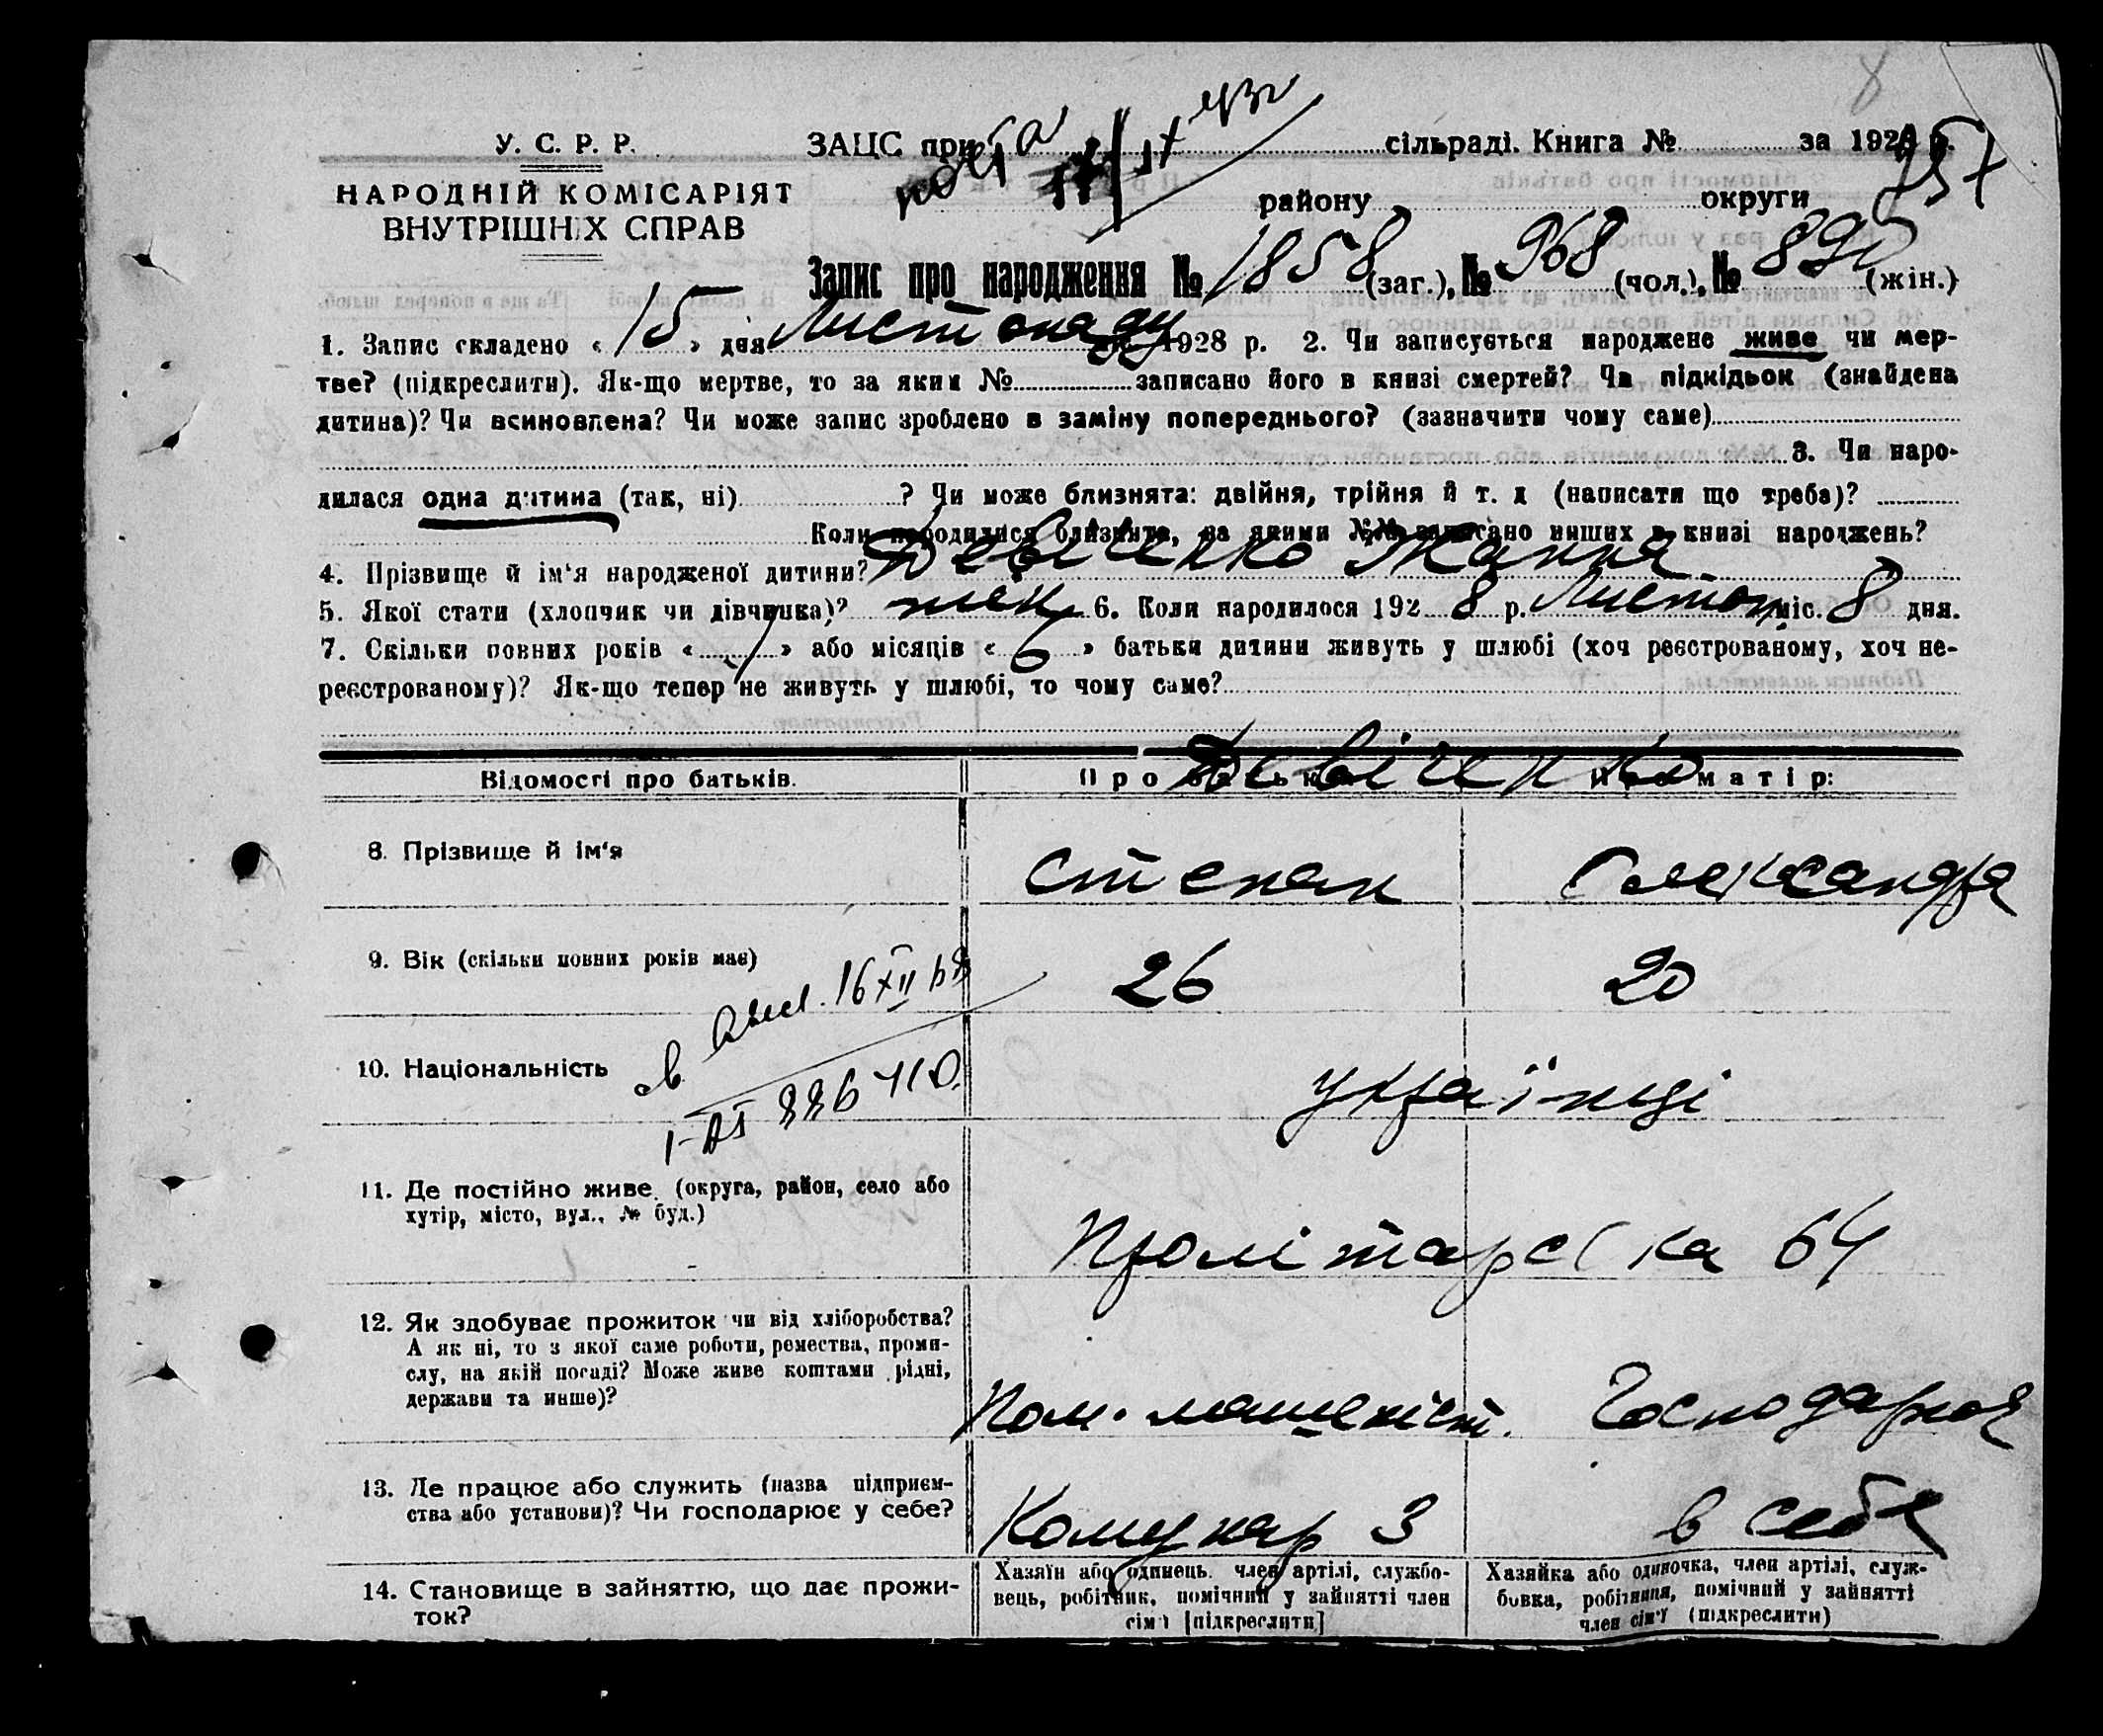 8
У. С. Р. Р.
НАРОДНІЙ КОМІСАРІЯТ
ВНУТРІШНІХ СПРАВ
ЗАЦС при сільраді. Книга № за 192 р.
району округи 957
Запис про народження № 1858 (заг.), № 968 (чол.), № 890 (жін.)
1. Запис складено « 15 » дня Листопаду 1928 р. 2. Чи записується народжене живе чи мер-
тве? (підкреслити). Як-що мертве, то за яким № записано його в книзі смертей? Чи підкідьок (знайдена
дитина)? Чи всиновлена? Чи може запис зроблено в заміну попереднього? (зазначити чому саме)
3. Чи наро-
дилася одна дитина (так, ні) ? Чи може близнята: двійня, трійня й т. д (написати що треба)?
Коли народилися близнята, за якими №№ записано инших в книзі народжень?
4. Прізвище й ім'я народженої дитини? Девіченко Жанна
5. Якої стати (хлопчик чи дівчинка)? жен 6. Коли народилося 192 8 р. Листоп міс. 8 дня.
7. Скільки повних років « 1 » або місяців « 6 » батьки дитини живуть у шлюбі (хоч реєстрованому, хоч не-
реєстрованому)? Як-що тепер не живуть у шлюбі, то чому саме?
Девіченко
Відомості про батьків. Про батька Про матір:
8. Прізвище й ім'я Степан Олександра
9. Вік (скільки повних років має) 26 20
10. Національність українці
11. Де постійно живе (округа, район, село або
хутір, місто, вул., № буд.)
Пролітарська 64
12. Як здобуває прожиток чи від хліборобства?
А як ні, то з якої саме роботи, ремества, проми-
слу, на якій посаді? Може живе коштами рідні,
держави та инше)?
Пом. машеніст. Господарює
13. Де працює або служить (назва підприєм-
ства або установи)? Чи господарює у себе?
Комунар 3 в себе
14. Становище в зайняттю, що дає прожи-
ток?
Хазяїн або одинець, член артілі, службо-
вець, робітник, помічний у зайнятті член
сім'ї [підкреслити]
Хазяйка або одиночка, член артілі, служ-
бовка, робітниця, помічний у зайнятті
член сім'ї (підкреслити)